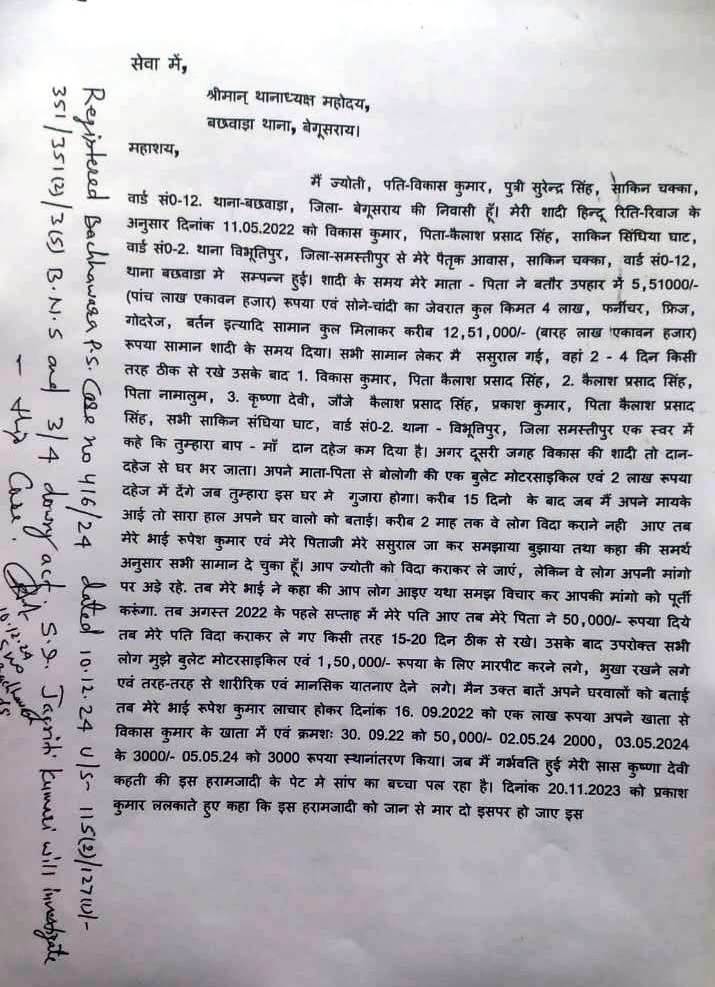 सेवा में,
श्रीमान् थानाध्यक्ष महोदय,
बछवाड़ा थाना, बेगूसराय।
महाशय,
मैं ज्योती, पति-विकास कुमार, पुत्री सुरेन्द्र सिंह, साकिन चक्का,
वार्ड सं0-12. थाना-बछवाड़ा, जिला- बेगूसराय की निवासी हूँ। मेरी शादी हिन्दू रिति-रिवाज के
अनुसार दिनांक 11.05.2022 को विकास कुमार, पिता-कैलाश प्रसाद सिंह, साकिन सिंघिया घाट,
वार्ड सं0-2. थाना विभूतिपुर, जिला-समस्तीपुर से मेरे पैतृक आवास, साकिन चक्का, वार्ड सं0-12,
थाना बछवाड़ा मे सम्पन्न हुई। शादी के समय मेरे माता - पिता ने बतौर उपहार में 5,51000/-
(पांच लाख एकावन हजार) रूपया एवं सोने-चांदी का जेवरात कुल किमत 4 लाख, फर्नीचर, फ्रिज,
गोदरेज, बर्तन इत्यादि सामान कुल मिलाकर करीब 12,51,000/- (बारह लाख एकावन हजार)
रूपया सामान शादी के समय दिया। सभी सामान लेकर मै ससुराल गई, वहां 2 - 4 दिन किसी
तरह ठीक से रखे उसके बाद 1. विकास कुमार, पिता कैलाश प्रसाद सिंह, 2. कैलाश प्रसाद सिंह,
पिता नामालुम, 3. कृष्णा देवी, जौजे कैलाश प्रसाद सिंह, प्रकाश कुमार, पिता कैलाश प्रसाद
सिंह, सभी साकिन संघिया घाट, वार्ड सं0-2. थाना - विभूतिपुर, जिला समस्तीपुर एक स्वर में
कहे कि तुम्हारा बाप - माँ दान दहेज कम दिया है। अगर दूसरी जगह विकास की शादी तो दान-
दहेज से घर भर जाता। अपने माता-पिता से बोलोगी की एक बुलेट मोटरसाइकिल एवं 2 लाख रूपया
दहेज में देंगे जब तुम्हारा इस घर मे गुजारा होगा। करीब 15 दिनो के बाद जब मैं अपने मायके
आई तो सारा हाल अपने घर वालो को बताई। करीब 2 माह तक वे लोग विदा कराने नही आए तब
मेरे भाई रूपेश कुमार एवं मेरे पिताजी मेरे ससुराल जा कर समझाया बुझाया तथा कहा की समर्थ
अनुसार सभी सामान दे चुका हूँ। आप ज्योती को विदा कराकर ले जाएं, लेकिन वे लोग अपनी मांगो
पर अड़े रहे. तब मेरे भाई ने कहा की आप लोग आइए यथा समझ विचार कर आपकी मांगो को पूर्ती
करुंगा. तब अगस्त 2022 के पहले सप्ताह में मेरे पति आए तब मेरे पिता ने 50,000/- रूपया दिये
तब मेरे पति विदा कराकर ले गए किसी तरह 15-20 दिन ठीक से रखे। उसके बाद उपरोक्त सभी
लोग मुझे बुलेट मोटरसाइकिल एवं 1,50,000/- रूपया के लिए मारपीट करने लगे, भुखा रखने लगे
एवं तरह-तरह से शारीरिक एवं मानसिक यातनाए देने लगे। मैन उक्त बातें अपने घरवालों को बताई
तब मेरे भाई रूपेश कुमार लाचार होकर दिनांक 16. 09.2022 को एक लाख रूपया अपने खाता से
विकास कुमार के खाता में एवं क्रमशः 30. 09.22 को 50,000/- 02.05.24 2000, 03.05.2024
के 3000/- 05.05.24 को 3000 रूपया स्थानांतरण किया। जब मैं गर्भवति हुई मेरी सास कृष्णा देवी
कहती की इस हरामजादी के पेट मे सांप का बच्चा पल रहा है। दिनांक 20.11.2023 को प्रकाश
कुमार ललकाते हुए कहा कि इस हरामजादी को जान से मार दो इसपर हो जाए इस
Registered Bachhawara P.S. Case no 416/24 dated 10.12.24 U/S- 115(2)/127(1)/-
351/351(2)/3(5) B.N.S and 3/4 dowry act. S.I. Jagriti Kumari will investigate
- this Case.
10.12.24